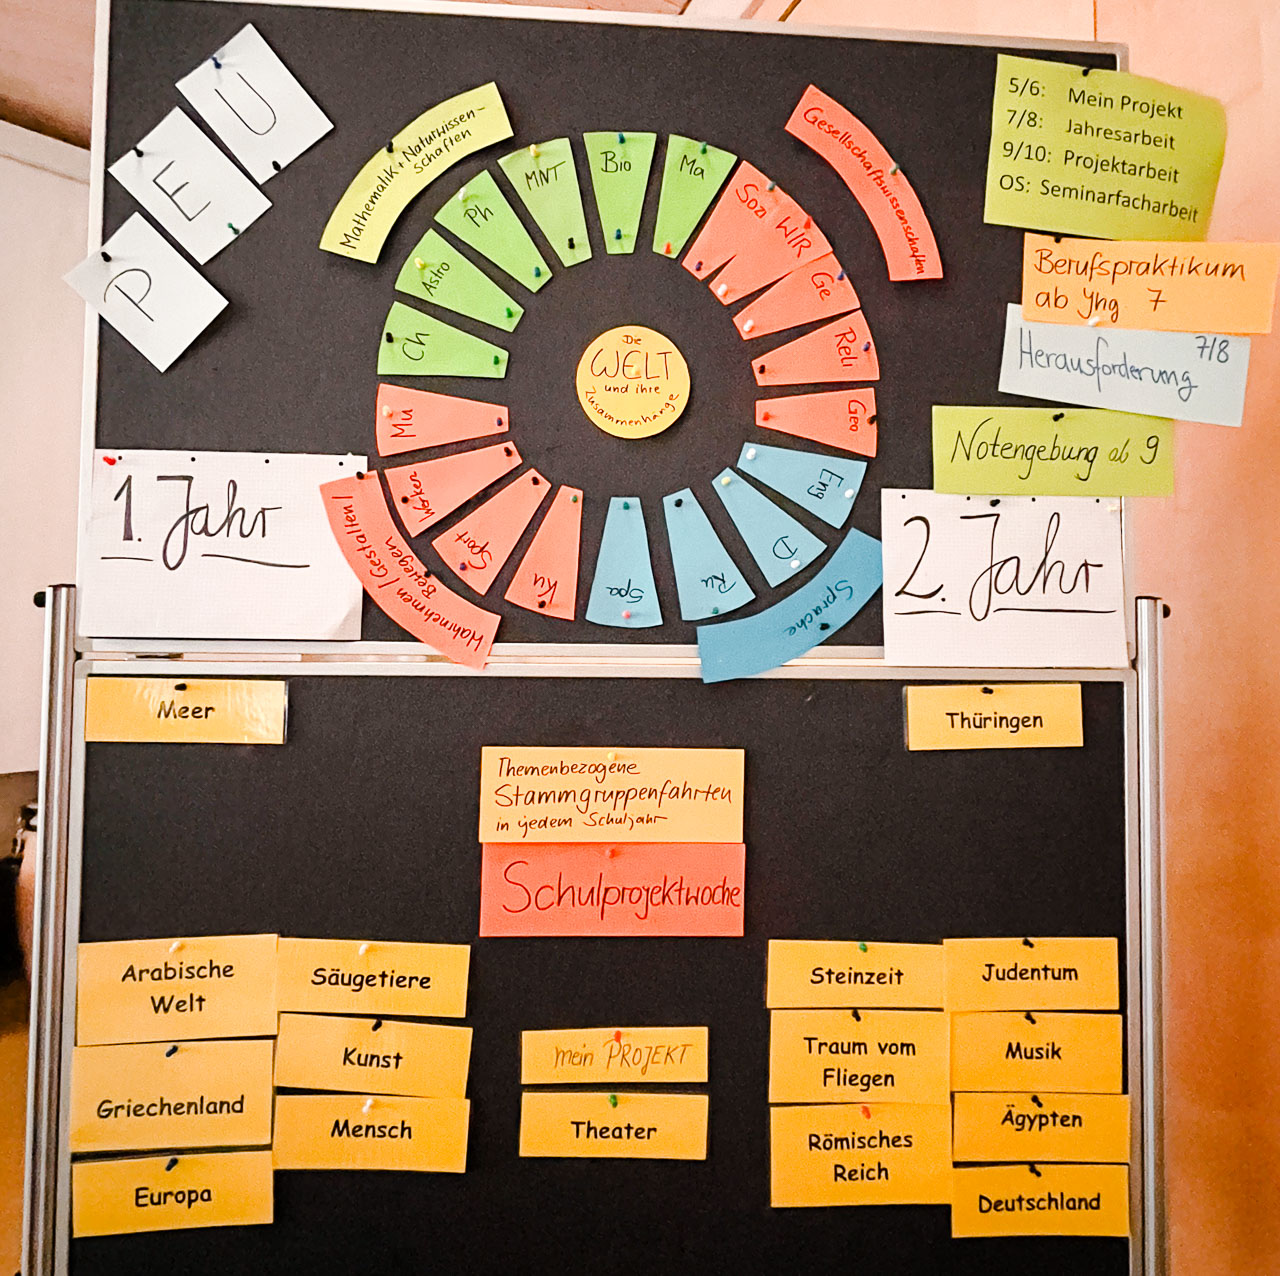 P
E
U
Mathematik + Naturwissen-
schaften
Gesellschaftswissenschaften
5/6: Mein Projekt
7/8: Jahresarbeit
9/10: Projektarbeit
OS: Seminarfacharbeit
Berufspraktikum
ab Jhg 7
Herausforderung 7/8
Notengebung ab 9
Ch
Astro
Ph
MNT
Bio
Ma
Sozi
WIR
Ge
Reli
Geo
Eng
D
Ru
Spa
Ku
Sport
Werken
Mu
Die
WELT
und ihre
Zusammenhänge
Wahrnehmen / Gestalten /
Bewegen
Sprache
1. Jahr
2. Jahr
Meer
Thüringen
Themenbezogene
Stammgruppenfahrten
in jedem Schuljahr
Schulprojektwoche
Arabische
Welt
Griechenland
Europa
Säugetiere
Kunst
Mensch
mein PROJEKT
Theater
Steinzeit
Traum vom
Fliegen
Römisches
Reich
Judentum
Musik
Ägypten
Deutschland